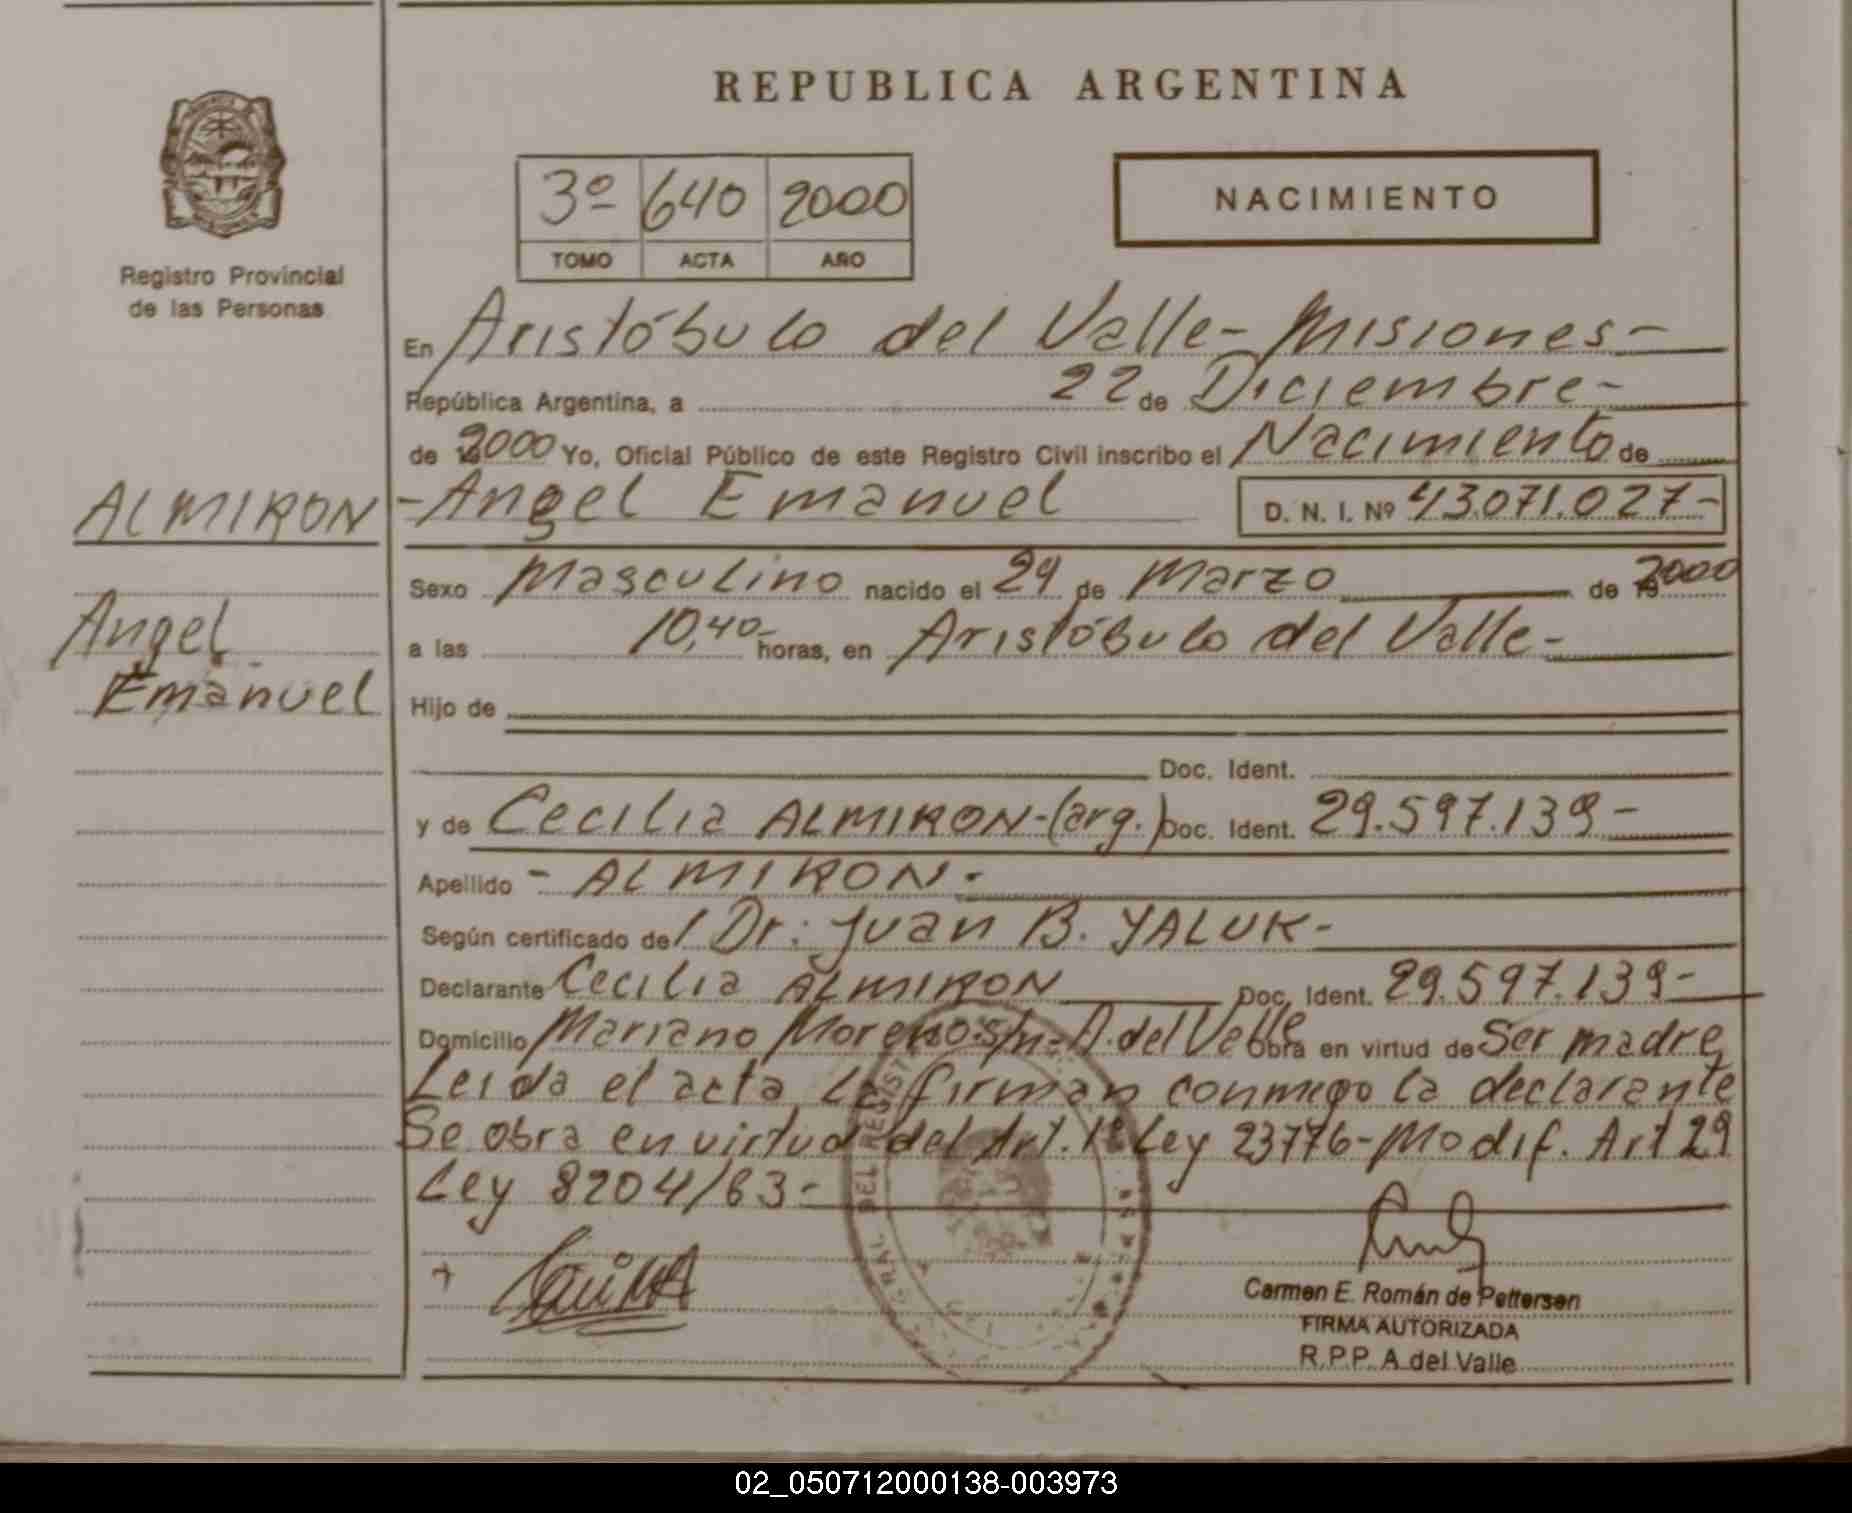 REPUBLICA ARGENTINA
3º 640 2000
TOMO ACTA AÑO
NACIMIENTO
Registro Provincial
de las Personas
En Aristóbulo del Valle - Misiones -
República Argentina, a 22 de Diciembre -
de 2000 Yo, Oficial Público de este Registro Civil inscribo el Nacimiento de
ALMIRON
Angel
Emanuel
- Angel Emanuel D. N. I. Nº 43.071.027 -
Sexo Masculino nacido el 29 de Marzo de 2000
a las 10,40 - horas, en Aristóbulo del Valle -
Hijo de
Doc. Ident.
y de Cecilia ALMIRON - (arg.) Doc. Ident. 29.597.139 -
Apellido - ALMIRON -
Según certificado de / Dr: Juan B. YALUK -
Declarante Cecilia ALMIRON Doc. Ident. 29.597.139 -
Domicilio Mariano Moreno s/n - A. del Valle Obra en virtud de Ser madre
Leida el acta la firman conmigo la declarante
Se obra en virtud del Art. 1º Ley 23776 - Modif. Art 29
Ley 8204/63 -
Carmen E. Román de Pettersen
FIRMA AUTORIZADA
R.P.P. A del Valle
02_050712000138-003973